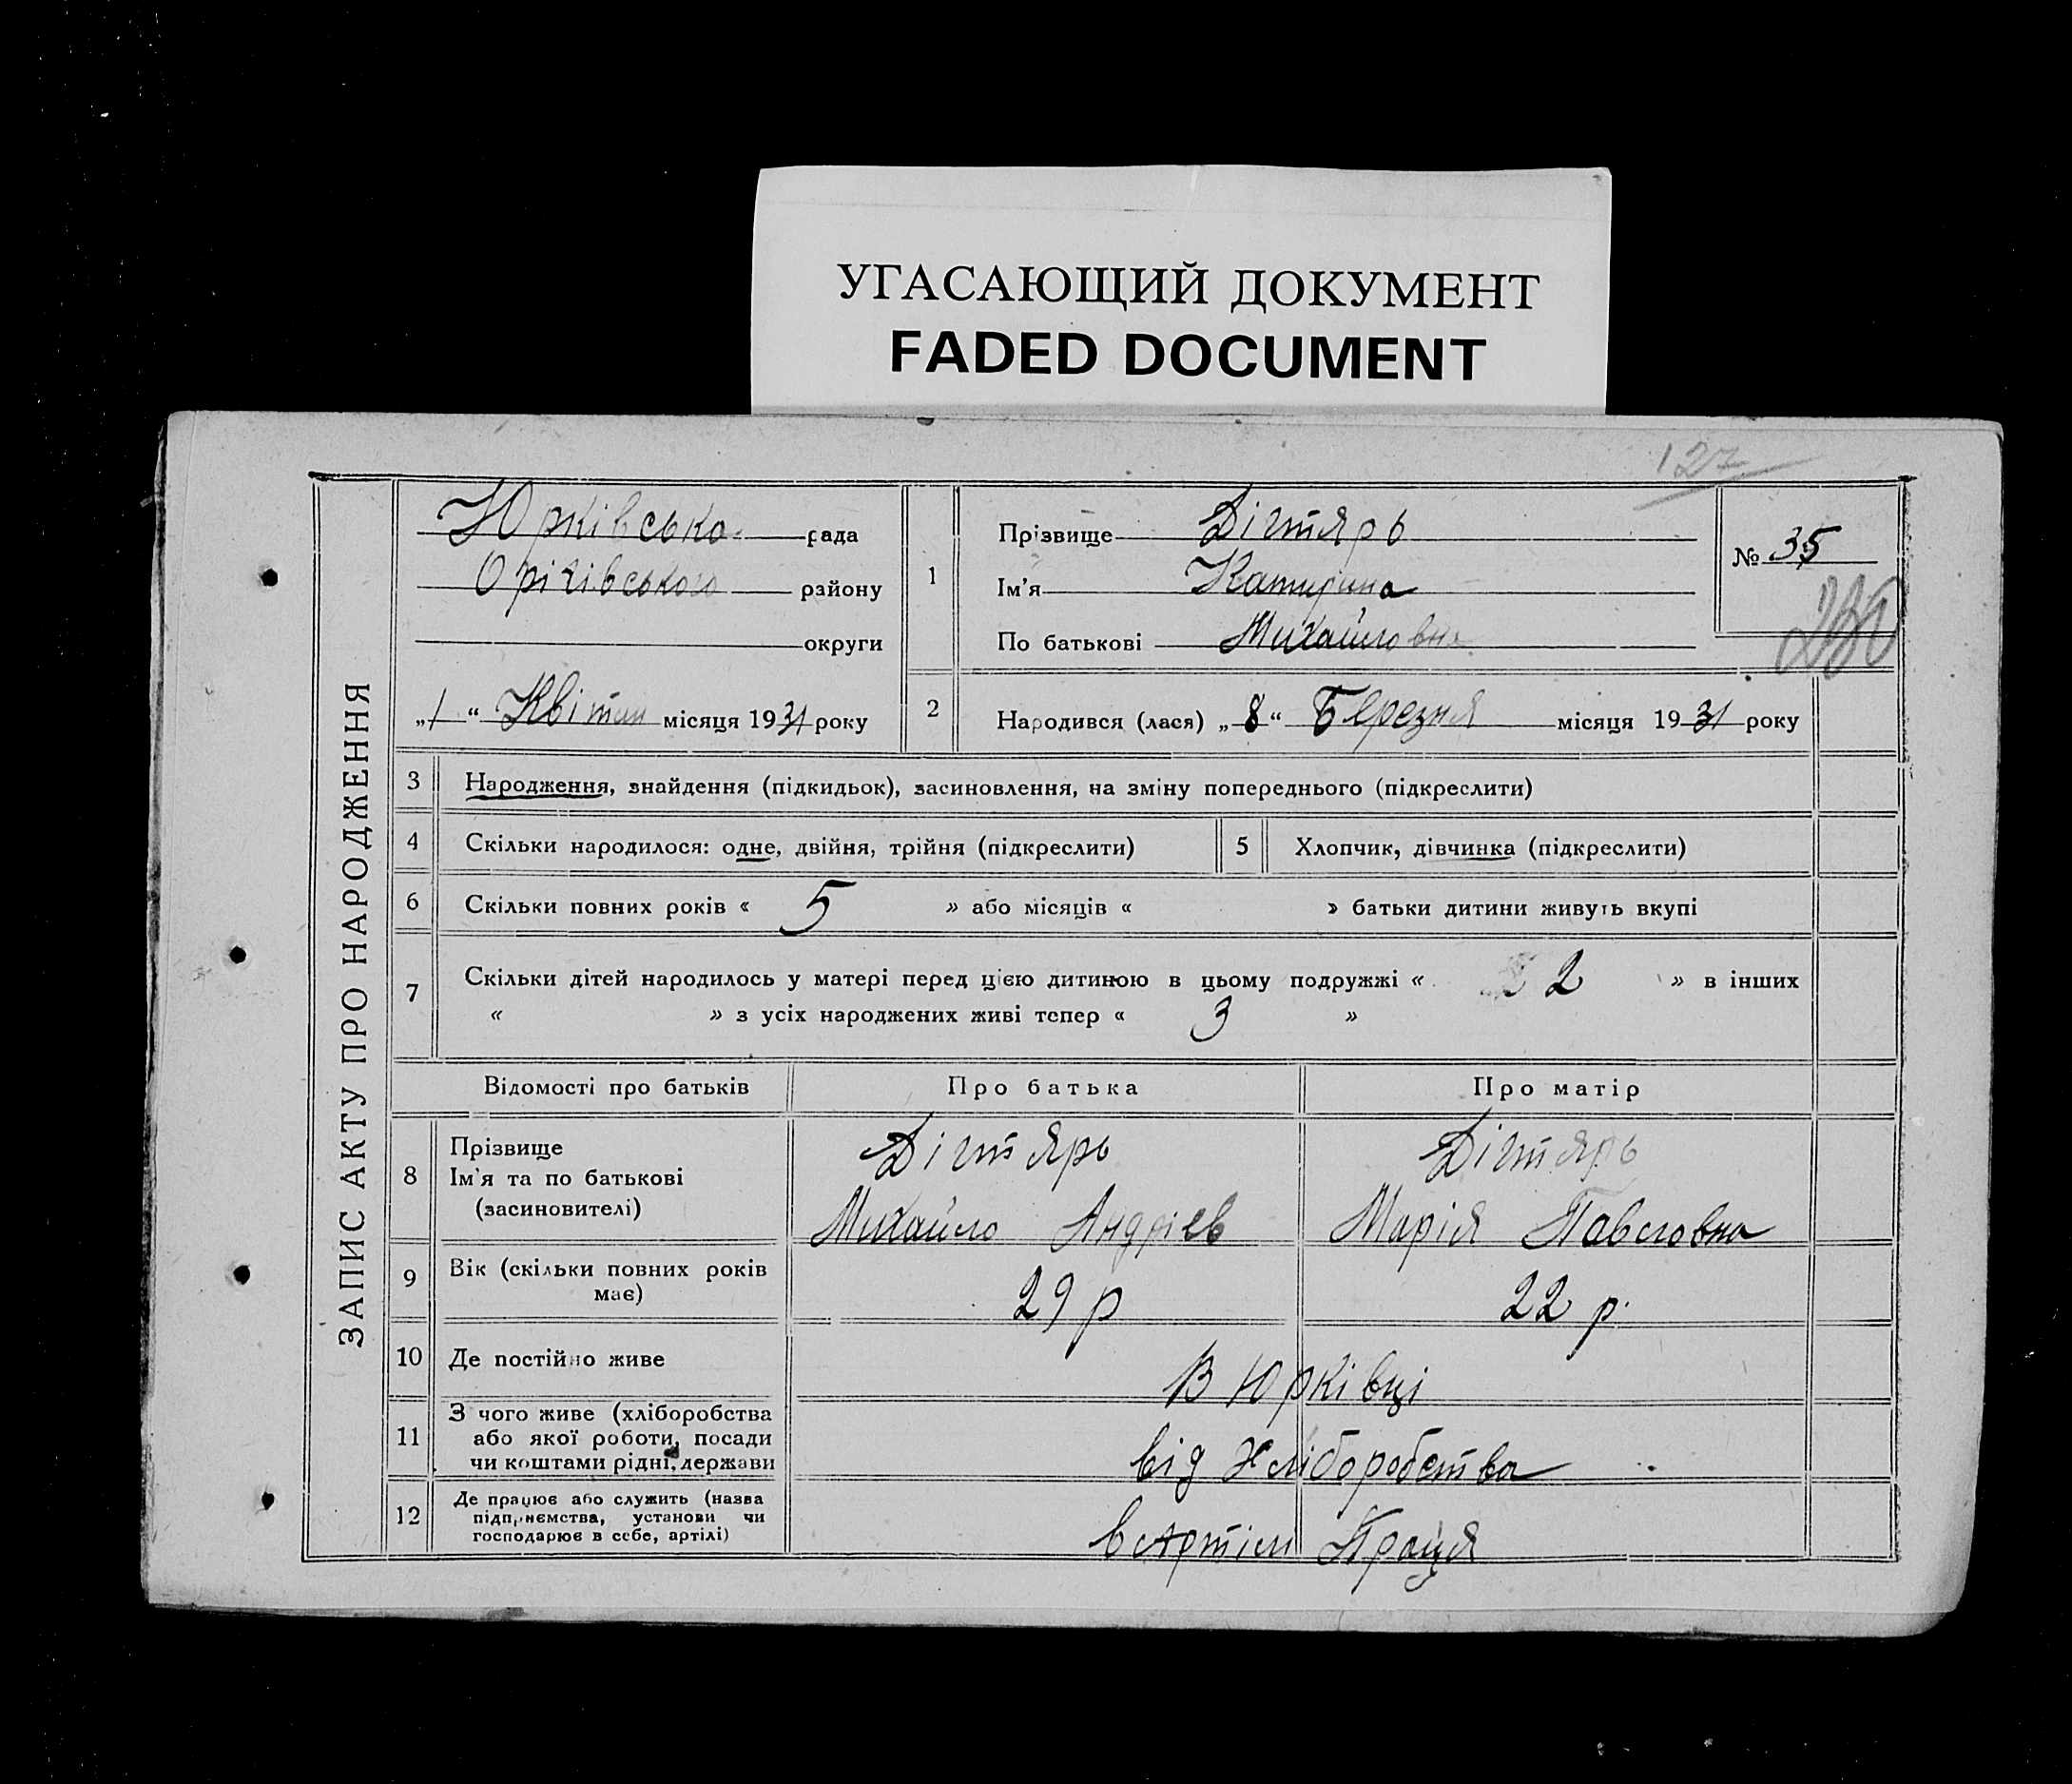 УГАСАЮЩИЙ ДОКУМЕНТ
FADED DOCUMENT
127
ЗАПИС АКТУ ПРО НАРОДЖЕННЯ
Юрківська рада
Оріхівського району
округи
„1“ Квітня місяця 1931 року
1
Прізвище Дігтярь
Ім'я Катирина
По батькові Михайловна
№ 35
2
Народився (лася) „8“ Березня місяця 1931 року
3 Народження, знайдення (підкидьок), засиновлення, на зміну попереднього (підкреслити)
4 Скільки народилося: одне, двійня, трійня (підкреслити) 5 Хлопчик, дівчинка (підкреслити)
6 Скільки повних років « 5 » або місяців « » батьки дитини живуть вкупі
7 Скільки дітей народилось у матері перед цією дитиною в цьому подружжі « 2 » в інших
« » з усіх народжених живі тепер « 3 »
Відомості про батьків Про батька Про матір
8 Прізвище
Ім'я та по батькові
(засиновителі)
Дігтярь
Михайло Андріев
Дігтярь
Марія Павловна
9 Вік (скільки повних років
має)
29 р
22 р.
10 Де постійно живе В Юрківці
11 З чого живе (хліборобства
або якої роботи, посади
чи коштами рідні, держави
від Хліборобства
12 Де працює або служить (назва
підприємства, установи чи
господарює в себе, артілі)
в Артілі Праця